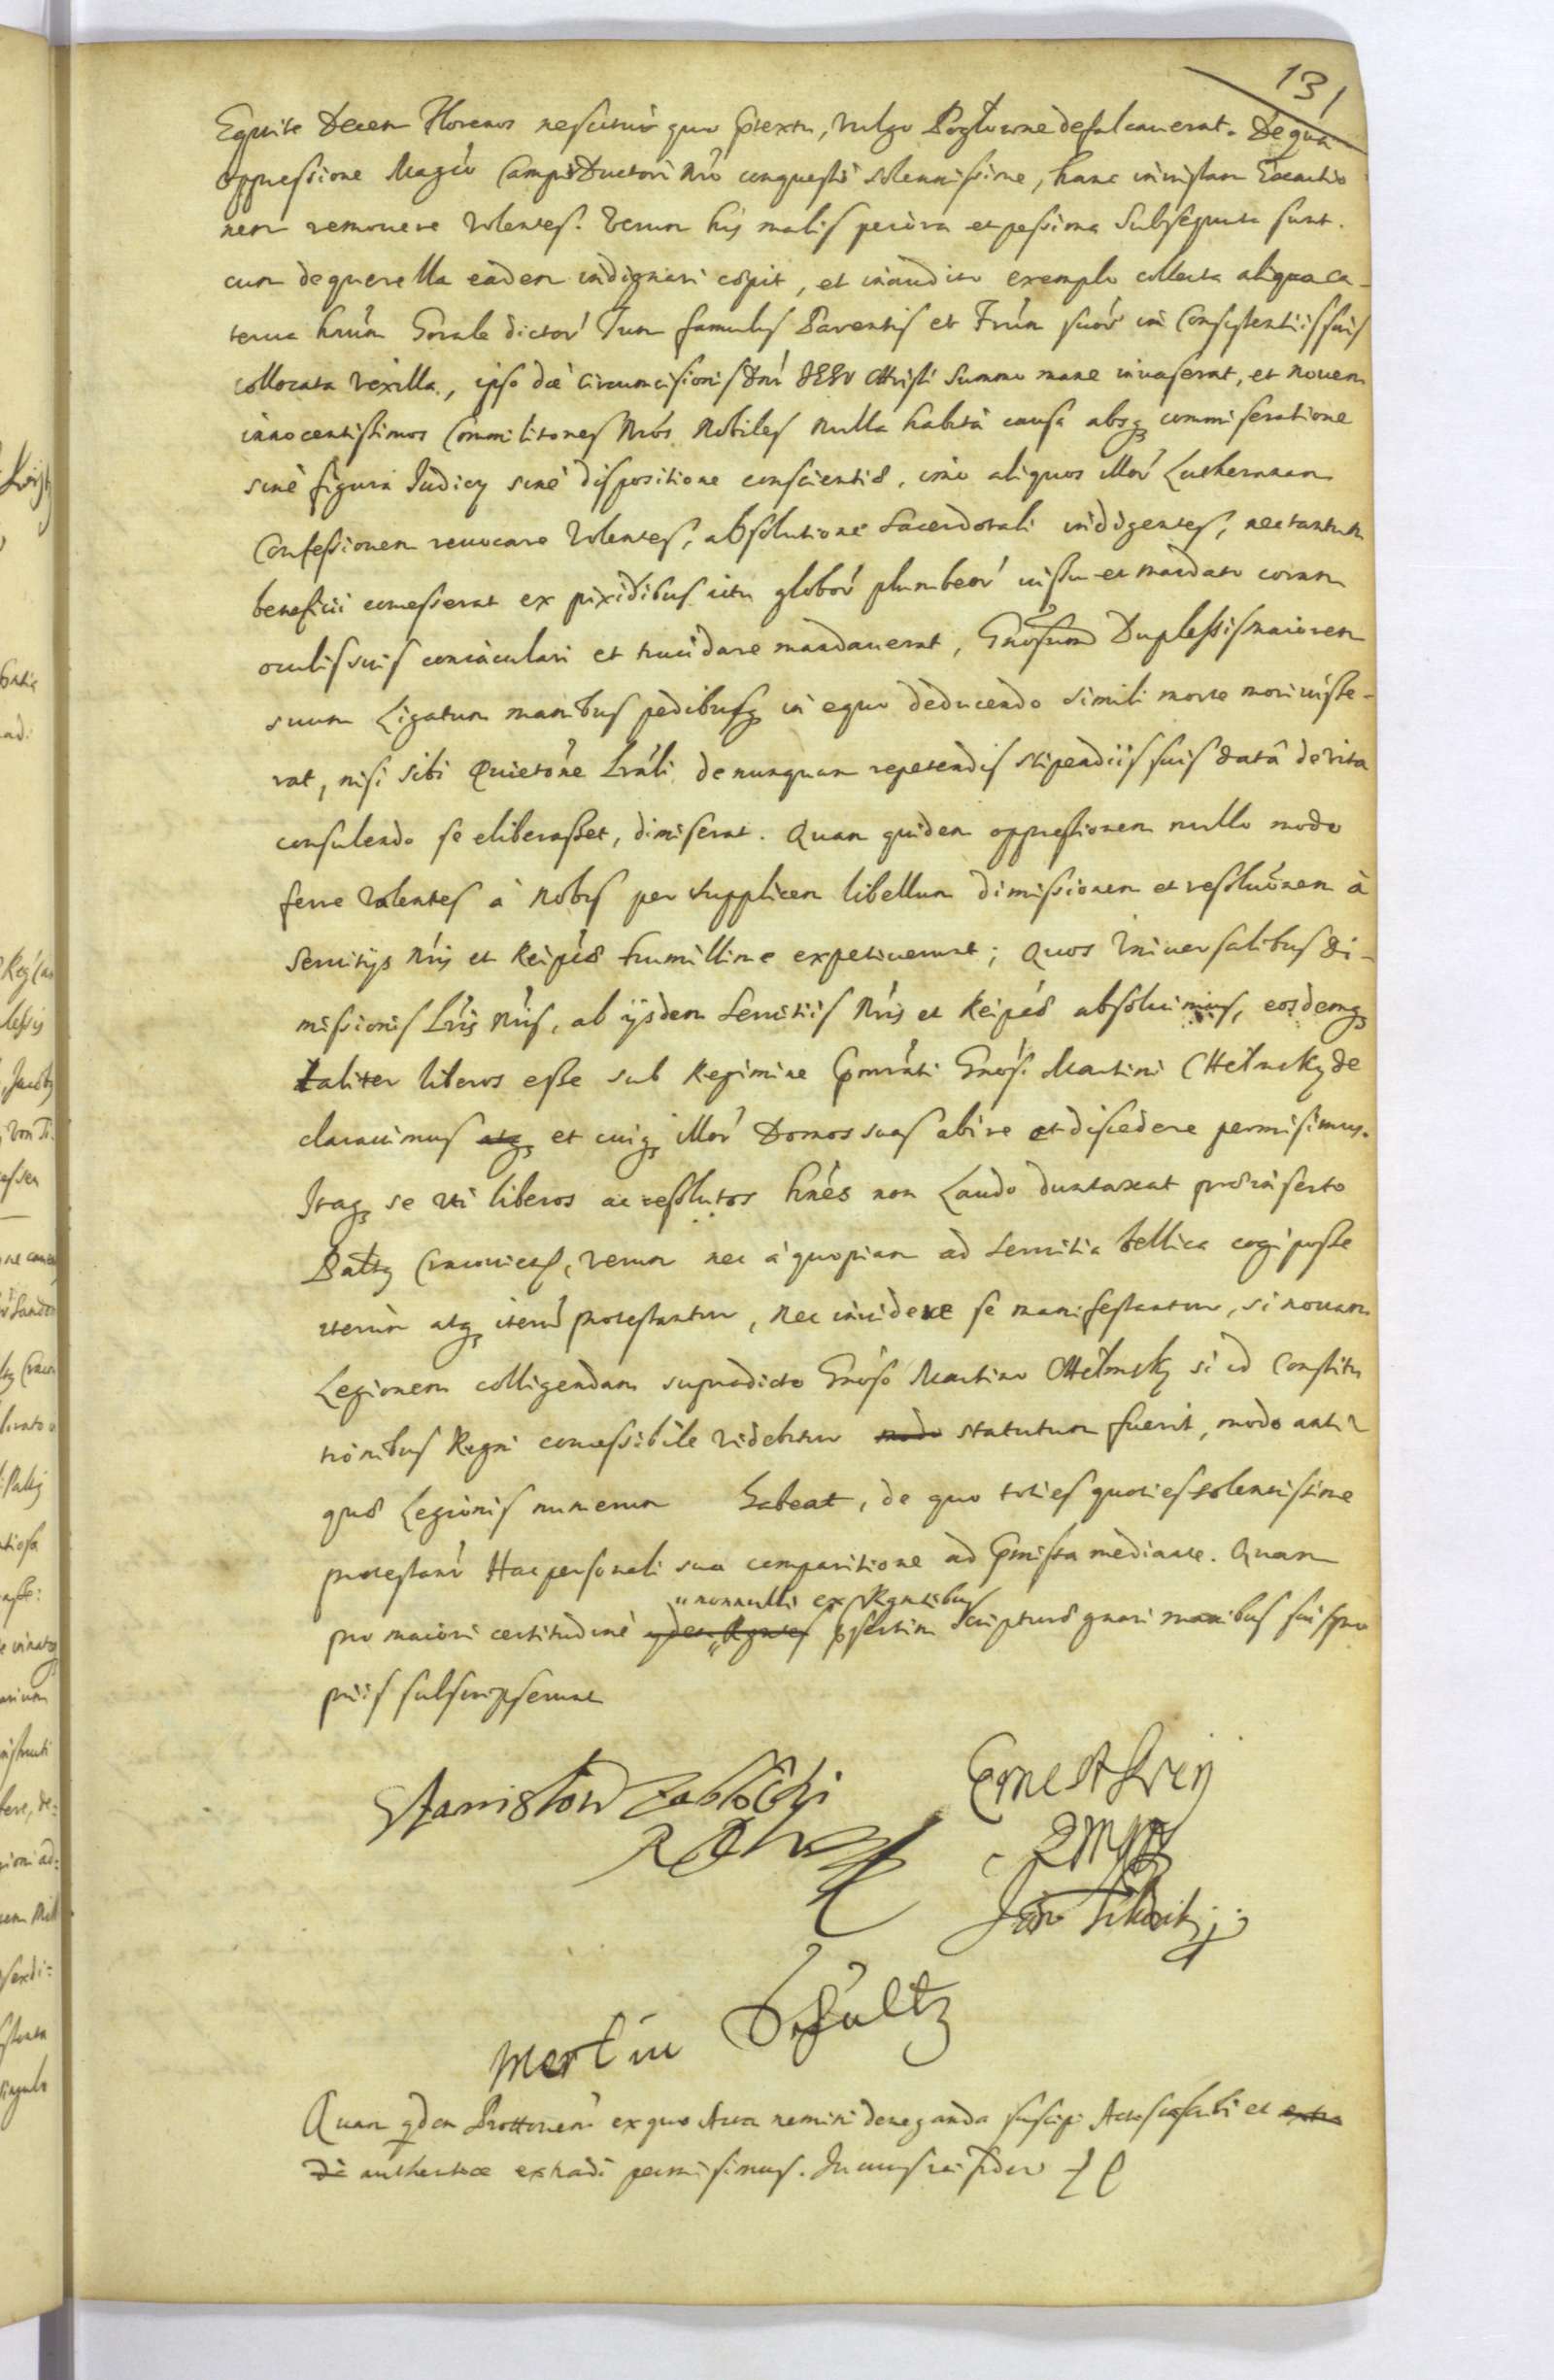 131
Equite Decem Florenos nescitur quo ptextu, vulgo Pogłowne defalcauerat. De qua
oppressione Magco CampiDuctori Nro conquesti solennissime, hanc iniustam Exactio
nem remouere volentes. Verum his malis peiora et pessima Subsequuta sunt.
cum de querella eadem indignari cœpit, et inaudito exemplo collecta aliqua ca-
terua hnum Gorale dictor Tum famulis Parentis et Frum suor in Consistentiis suis
collocata vexilla, ipso die Circumcisionis Dni IESV Christi Summo mane inuaserat, et nouem
innocentissimos Commilitones Nros Nobiles nulla habita causa absq commiseratione
sine figura Iudicy sine dispositione conscientiæ, imo aliquos illor Lutheranam
Confessionem reuocare Volentes, absolutione Sacerdotali indigentes, nec tantum
beneficii concesserat ex pixidibus ictu globor plumbeor iussu et mandato coram
oculis suis coniaculari et trucidare mandauerat, Gnosum Duplessis maiorem
suum Ligatum manibus pedibusq in equo deducendo simili morte mori iusse-
rat, nisi sibi Quietone Lrali de nunquam repetendis stipendiis suis data de vita
consulendo se eliberasset, dimiserat. Quam quidem oppressionem nullo modo
ferre volentes à Nobis per supplicem libellum dimissionem et resolutonem à
Seruitys Nris et Reipcæ humillime expetiuerunt; Quos Vniuersalibus di-
missionis Lris Nris, ab ijsdem Seruitiis Nris et Reipcæ absoluimus, eosdemq
taliter liberos esse sub Regimine Gnrati Gnosi Martini CHełmsky de
clarauimus atq et cuiq illor Domos suas abire et discedere permisimus.
Itaq se uti liberos ac resolutos hnes non Laudo duntaxat præinserto
Palty Cracouien, verum nec à quopiam ad Seruitia bellica cogi posse
iterum atq iterum protestantur, nec inuidere se manifestantur, si nouam
Legionem colligendam supradicto Gnoso Martino CHełmsky si id Constitu
tionibus Regni concessibile videbitur modo statutum fuerit, modo anti
quæ Legionis numerum habeat, de quo toties quoties solennissime
protestant Hac personali sua comparitione ad pmissa mediante. Quam
"nonnulli ex Pgntibus
pro maiori certitudine psertim scripturæ gnari manibus suis pro
priis subscripserunt
Stanisłow Zabłocki
Ernest
Jan
Mertin Schultz
Quam qdem Prottonem ex quo Acta nemini deneganda suscipi Actis inscribi et extra
di authentice extradi permisimus. In cuius rei fidem